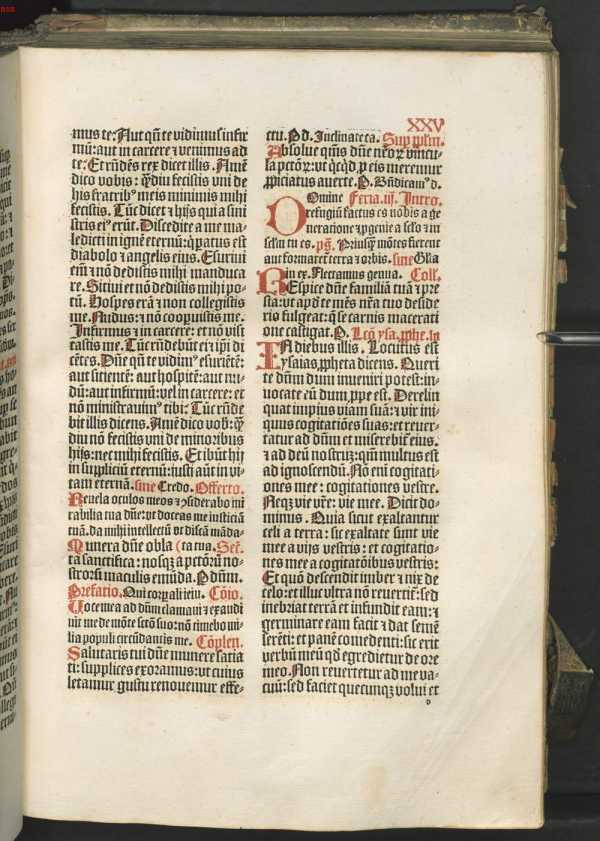 XXV
mus te: Aut qñ te vidimus infir
mū: aut in carcere ⁊ venimus ad
te: Et rñdēs rex dicet illis. Amē
dico vobis: q̄diu fecistis uni de
his fratribꝰ meis minimis mihi
fecistis. Tūc dicet ⁊ hijs qui a sini
stris eiꝰ erūt. Discedite a me ma-
ledicti in ignē eternū: q̇ paratus est
diabolo ⁊ angelis eius. Esurivi
em̄ ⁊ nō dedistis mihi manduca
re. Sitivi et nō dedistis mihi po-
tū. Hospes erā ⁊ non collegistis
me. Nudus: ⁊ nō cooꝑuistis me.
Infirmus ⁊ in carcere: et nō visi
tastis me. Tūc rñdebūt ei ⁊ ip̄i di
cētes. Dñe qñ te vidimꝰ esuriētē:
aut sitientē: aut hospitē: aut nu-
dū: aut infirmū: vel in carcere: et
nō ministravimꝰ tibi: Tūc rñde
bit illis dicens. Amē dico vob: q̄
diu nō fecistis uni de minoribus
hijs: nec mihi fecistis. Et ibūt hij
in suppliciū eternū: iusti aūt in vi-
tam eternā. sine Credo. Offerto.
Revela oculos meos ⁊ ɔsiderabo mi
rabilia tua dñe: ut doceas me iusticiā
tuā. da mihi intellectū ut discā māda-
Munera dñe obla (ta tua. Secr̄.
ta sanctifica: nosq̄ a pctōrū no-
stroꝝ maculis emūda. P dñm.
Prefatio. Qui corꝑali ieiu. Cōio.
Voce mea ad dñm clamavi ⁊ exaudi
vit me de mōte sctō suo: nō timebo mi-
lia populi circūdantis me. Cōplen.
Salutaris tui dñe munere satia
ti: supplices exoramus: ut cuius
letamur gustu renovemur effe-
ctu. P d. Inclinate ca. Sup pl̄m.
Absolve q̄ms dñe nr̄oꝝ vincu-
la pctōꝝ: ut qc̄qd ꝓ eis meremur
ꝓpiciatus averte. P. Bñdicamꝰ d.
Feria. iij. Intro.
Domine
refugiū factus es nobis a ge
neratione ⁊ ꝓgenie a sclo ⁊ in
sclm tu es. ps̄. Priusq̄ mōtes fierent
aut formaret terra ⁊ orbis. sine Glia
in ex. Flectamus genua. Coll̄.
REspice dñe familiā tuā ⁊ pre
sta: ut apd te mēs nr̄a tuo deside
rio fulgeat: q̄ se carnis macerati
one castigat. P. Lcō ysa. ꝓphe. in
IN diebus illis. Locutus est
ysaias ꝓpheta dicens. Queri
te dñm dum inveniri potest: in-
vocate eū dum ꝓpe est. Derelin
quat impius viam suā: ⁊ vir ini-
quus cogitatiōes suas: et rever-
tatur ad dñm et miserebit̄ eius.
⁊ ad deū nostrū: qm̄ multus est
ad ignoscendū. Nō em̄ cogitati-
ones mee: cogitationes vestre.
Neq̄ vie vr̄e: vie mee. Dicit do-
minus. Quia sicut exaltantur
celi a terra: sic exaltate sunt vie
mee a vijs vestris: et cogitatio-
nes mee a cogitatōibus vestris:
Et quō descendit imber ⁊ nix de
celo: et illuc ultra nō revertit̄: sed
inebriat terrā et infundit eam: ⁊
germinare eam facit ⁊ dat semē
serēti: et panē comedenti: sic erit
verbū meū qd̄ egredietur de ore
meo. Non revertetur ad me va-
cuū: sed faciet quecunq̄ volui et